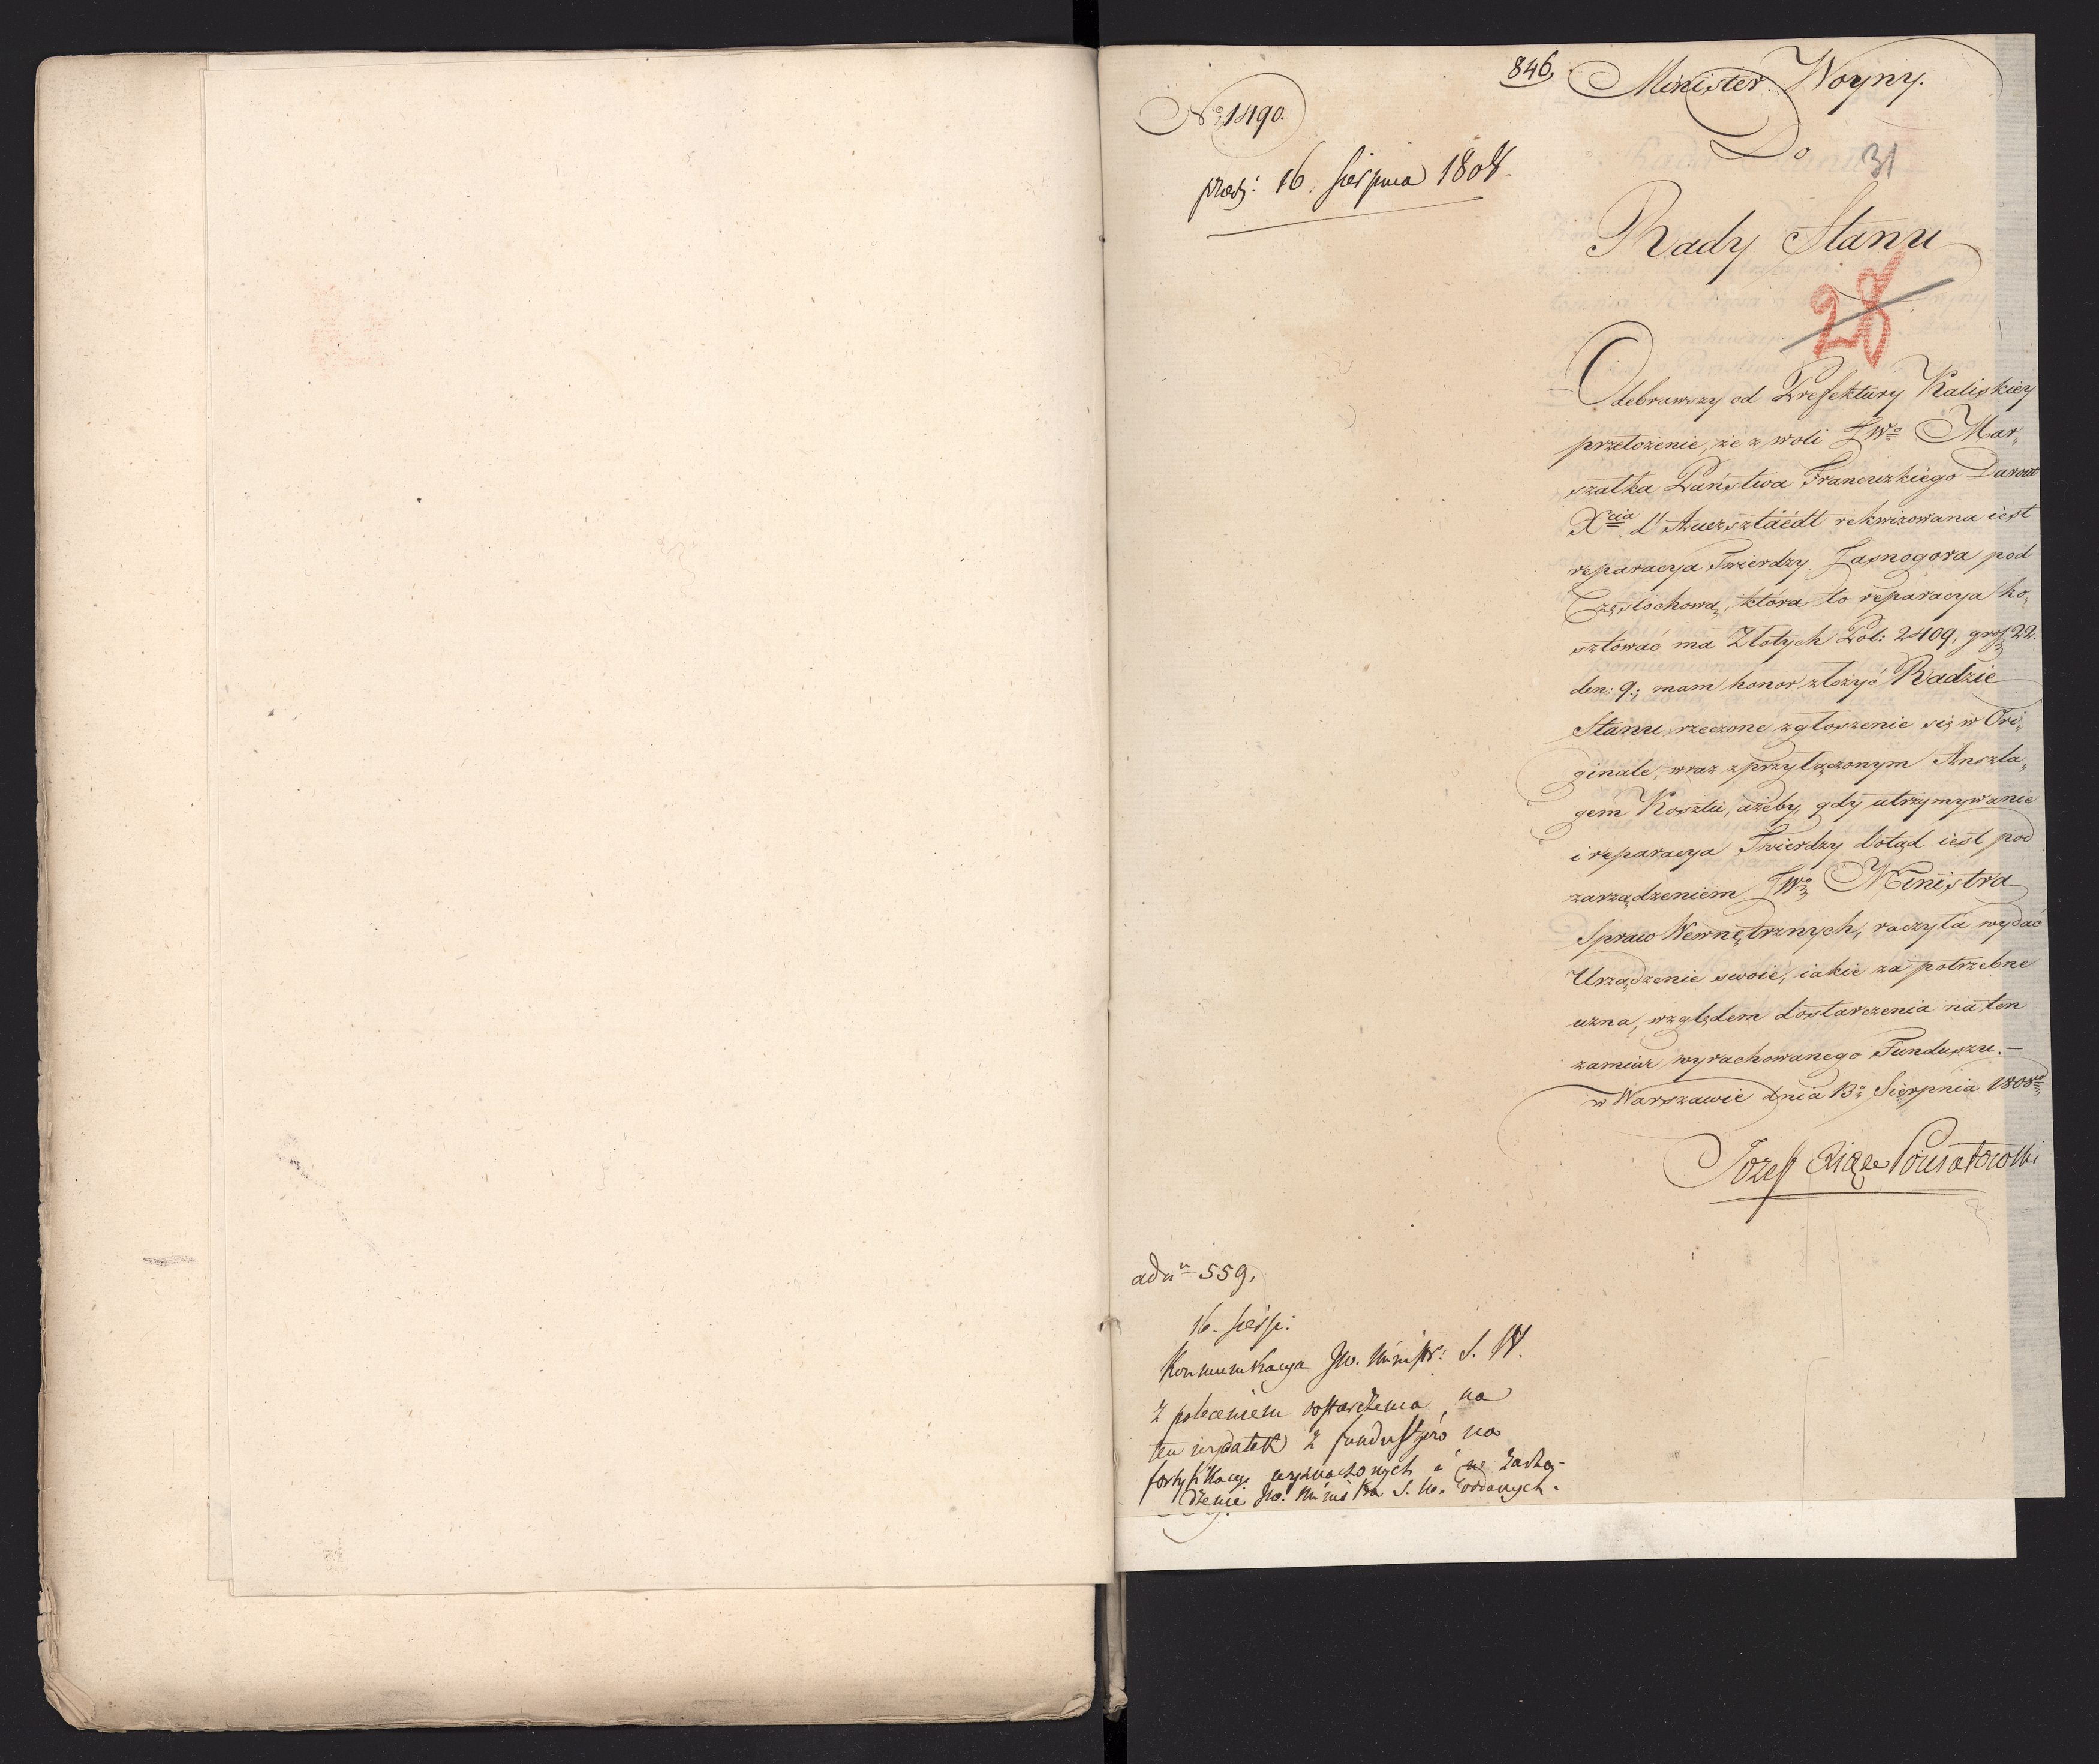 846,
Minister Woyny.
No 1490.
Do
31
prez: 16. Sierpnia 1808.
Rady Stanu
28
Odebrawszy od Prefektury Kaliskiey
przełożenie, że z woli JWo Mar„
szałka Państwa Francuzkiego Davout
Xcia d'Auersztaedt rekwirowana iest
reparacya Twierdzy Jasnogora pod
Częstochową, która to reparacya ko„
sztować ma Złotych Pol: 2409, gro: 22.
den: 9.; mam honor złożyć Radzie
Stanu rzeczone zgłoszenie się w Ori„
ginale, wraz z przyłączonym Anszla„
gem Kosztu, ażeby, gdy utrzymywanie
i reparacya Twierdzy dotąd iest pod
zarządzeniem JWo Ministra
Spraw Wewnętrznych, raczyła wydać
Urządzenie swoie, iakie za potrzebne
uzna, względem dostarczenia na ten
zamiar wyrachowanego Funduszu.—
w Warszawie dnia 13o Sierpnia 1808
Józef Xiąże Poniatowski
ad n 559,
16. Sierp:
Kommunikacya JW. Ministr: S. W.
z poleceniem dostarczenia na
ten wydatek z funduszów na
fortyfikacye wyznaczonych i w zarzą-
dzenie JW. Ministra S. W. oddanych.